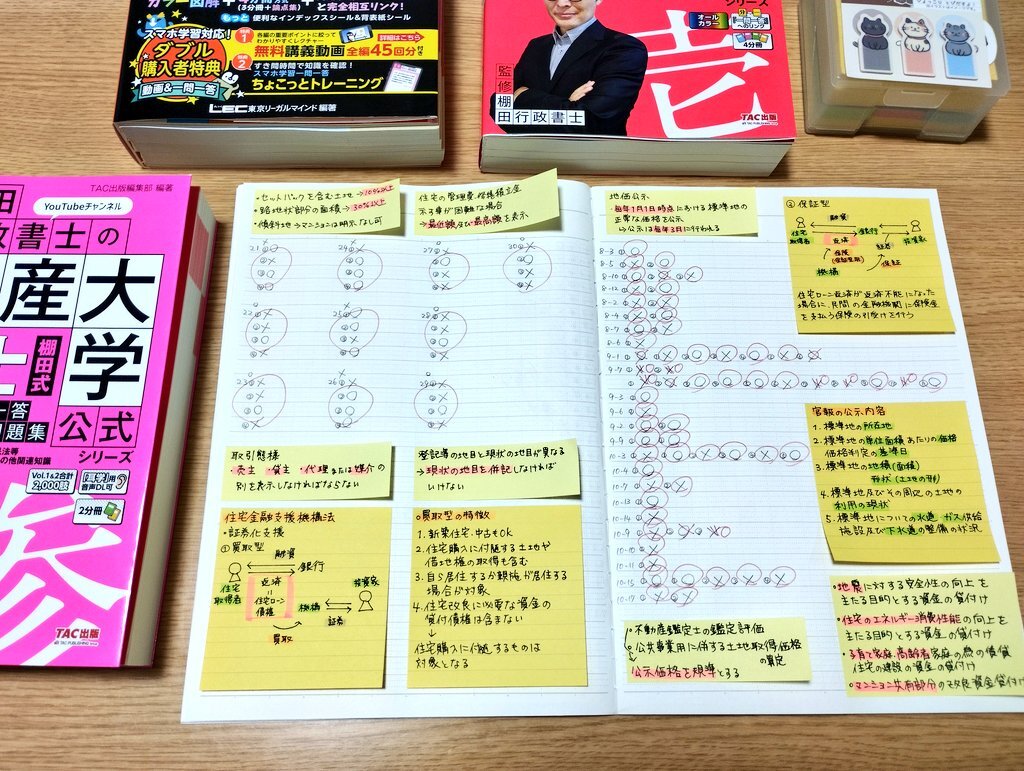 カラー図解
(3分冊+論点集)
と完全相互リンク!
もっと 便利なインデックスシール&背表紙シール
スマホ学習対応!
ダブル
購入者特典
動画&一問一答
特典1
各編の重要ポイントに絞って
わかりやすくレクチャー
無料講義動画 全編45回分付き
詳細はこちら
特典2
すき間時間で知識を確認!
スマホ学習一問一答
ちょこっとトレーニング
LEC東京リーガルマインド 編著
シリーズ
オールカラー
4分冊
監修
棚田行政書士
壱
TAC出版
TAC PUBLISHING
TAC出版編集部 編著
YouTubeチャンネル
政書士の
産大
学
棚田式
公式
シリーズ
問題集
の他関連知識
Vol.1&2合計
2,000問
「耳学」用
音声DL可
2分冊
参
TAC出版
TAC PUBLISHING
・セットバックを含む土地→10%以上
・路地状部分の面積→30%以上
・傾斜地 マンションは明示なし可
住宅の管理費、修繕積立金
示す事が困難な場合
→最低額及び最高額を表示
21
24
27
30
22
25
28
23
26
29
取引態様
売主・貸主・代理または媒介の
別を表示しなければならない
登記簿の地目と現状の地目が異なる
→現状の地目を併記しなければ
いけない
住宅金融支援機構法
・証券化支援
①買取型
融資
銀行
住宅
取得者
返済
=
住宅ローン
債権
機構
投資家
証券
買取
○買取型の特徴
1. 新築住宅、中古もOK
2. 住宅購入に付随する土地や
借地権の取得も含む
3. 自ら居住するか親族が居住する
場合が対象
4. 住宅改良に必要な資金の
貸付債権は含まない
↓
住宅購入に付随するものは
対象となる
地価公示
・毎年1月1日時点における標準地の
正常な価格を公示
→公示は毎年3月に行われる
8-3
8-5
8-10
8-12
8-2
8-4
8-7
9-1
9-7
9-3
9-6
9-2
9-4
10-3
10-7
10-13
10-14
10-9
10-10
10-11
10-15
10-17
②保証型
融資
住宅
取得者
銀行
返済
投資家
証券
保険
機構
保証
住宅ローン返済が返済不能になった
場合に、民間の金融機関に保険金
を支払う保険の引受けを行う
官報の公示内容
1. 標準地の所在地
2. 標準地の単位面積あたりの価格
価格判定の基準日
3. 標準地の地積(面積)
形状(土地の形)
4. 標準地及びその周辺の土地の
利用の現状
5. 標準地についての水道、ガス供給
施設及び下水道の整備の状況
・不動産鑑定士の鑑定評価
・公共事業用に併する土地取得価格
の算定
公示価格を規準とする
・地震に対する安全性の向上を
主たる目的とする資金の貸付け
・住宅のエネルギー消費性能の向上を
主たる目的とする資金の貸付け
・子育て家庭、高齢者家庭の為の賃貸
住宅の建設の資金の貸付け
・マンション共有部分の改良資金貸付け